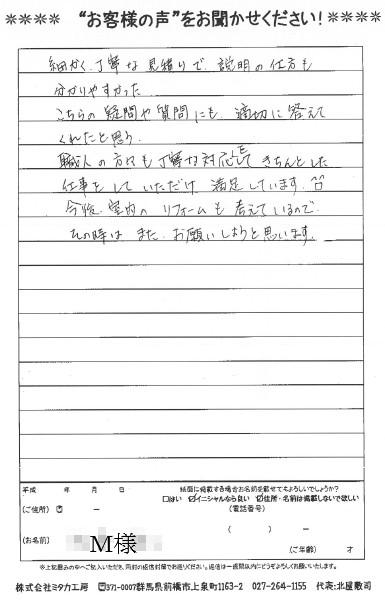 ＊＊＊＊ “お客様の声”をお聞かせください！ ＊＊＊＊
細かく、丁寧な見積りで、説明の仕方も
分かりやすかった
こちらの疑問や質問にも、適切に答えて
くれたと思う
職人の方々も丁寧な対応をしてきちんとした
仕事をしていただけ 満足しています ^^
今後、室内のリフォームも考えているので、
その時は また、お願いしようと思います
平成　年　月　日
紙面に掲載する場合お名前を載せてもよろしいでしょうか？
□はい ☑イニシャルなら良い ☑住所・名前は掲載しないで欲しい
（ご住所）〒　－
（電話番号）
（　）　－
（お名前）
M様
（ご年齢）　才
※上記囲みの中へご記入いただき、同封の返信封筒でお送りください。返信は一週間以内にどうぞよろしくお願いいたします。
株式会社ミタカ工房 〒371-0007群馬県前橋市上泉町1163-2 027-264-1155 代表：北爪敷司